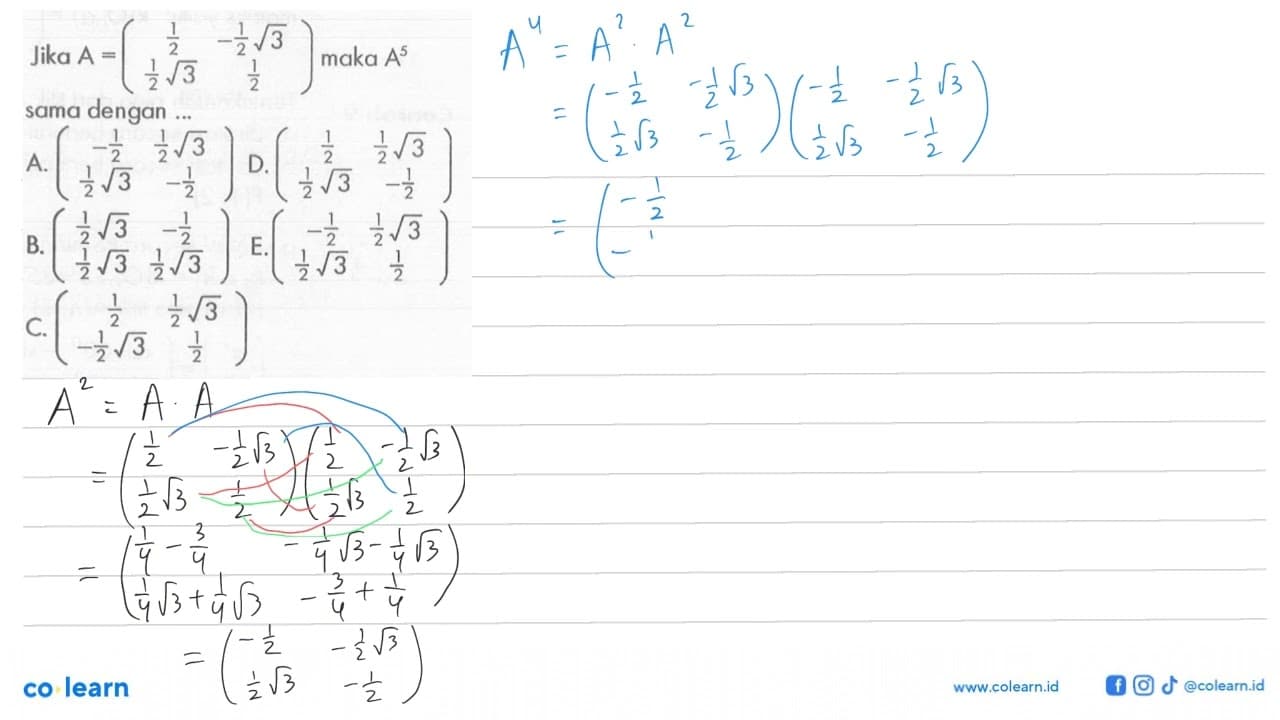 Jika A = ( 1/2 -1/2√3 ; 1/2√3 1/2 ) maka A⁵
sama dengan ...
A. ( -1/2 1/2√3 ; 1/2√3 -1/2 ) D. ( 1/2 1/2√3 ; 1/2√3 -1/2 )
B. ( 1/2√3 -1/2 ; 1/2√3 1/2√3 ) E. ( -1/2 1/2√3 ; 1/2√3 1/2 )
C. ( 1/2 1/2√3 ; -1/2√3 1/2 )
A² = A · A
= ( 1/2 -1/2√3 ; 1/2√3 1/2 ) ( 1/2 -1/2√3 ; 1/2√3 1/2 )
= ( 1/4 - 3/4 -1/4√3 - 1/4√3 ; 1/4√3 + 1/4√3 -3/4 + 1/4 )
= ( -1/2 -1/2√3 ; 1/2√3 -1/2 )
A⁴ = A² · A²
= ( -1/2 -1/2√3 ; 1/2√3 -1/2 ) ( -1/2 -1/2√3 ; 1/2√3 -1/2 )
= ( -1/2 ; - 1
co learn
www.colearn.id @colearn.id